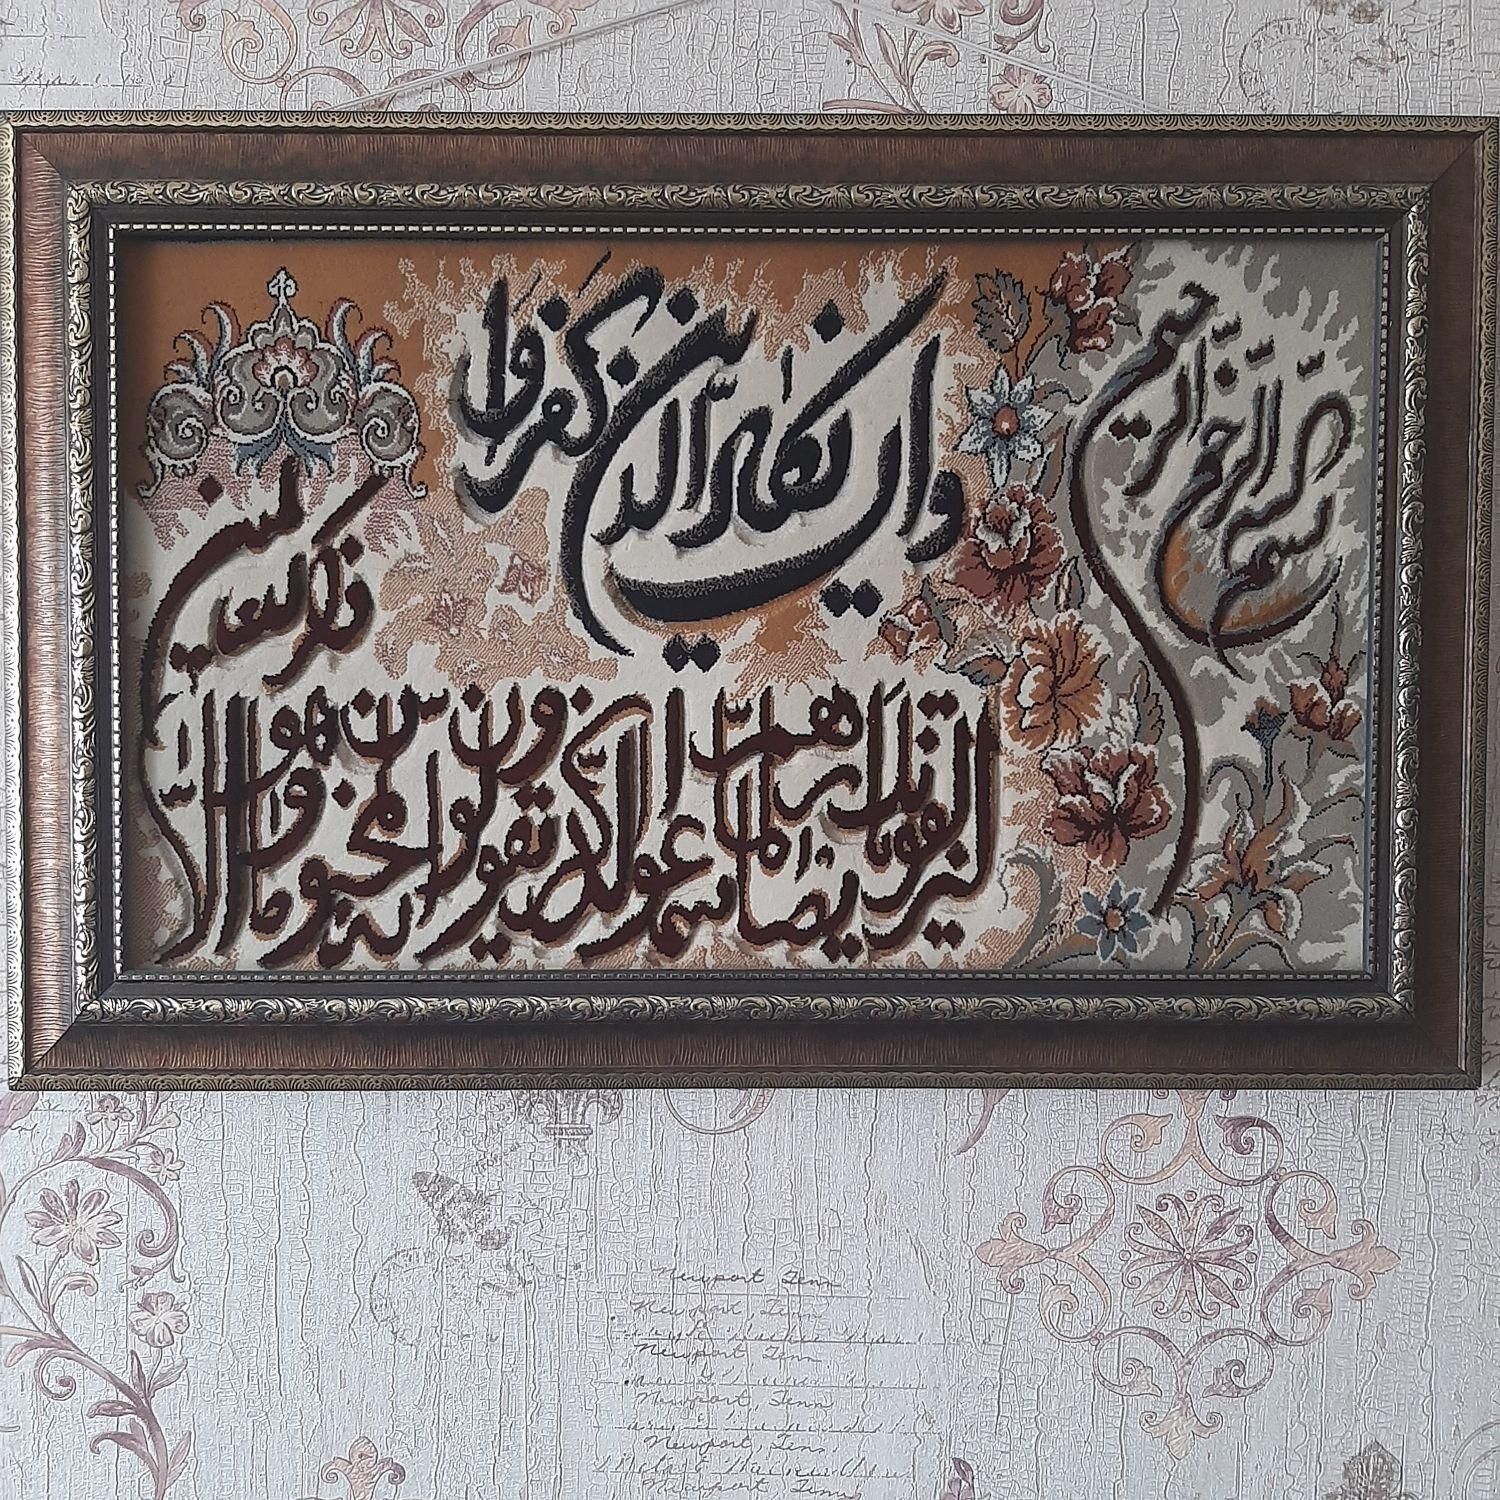 بسم الله الرحمن الرحیم
وان یکاد الذین کفروا
لیزلقونک بابصارهم لما سمعوا الذکر ویقولون انه لمجنون وما هو الا
ذکر للعالمین
Newport Tenn
Newport, Tenn
Newport Tenn
Newport, Tenn
Newport, Tenn
Newport, Tenn